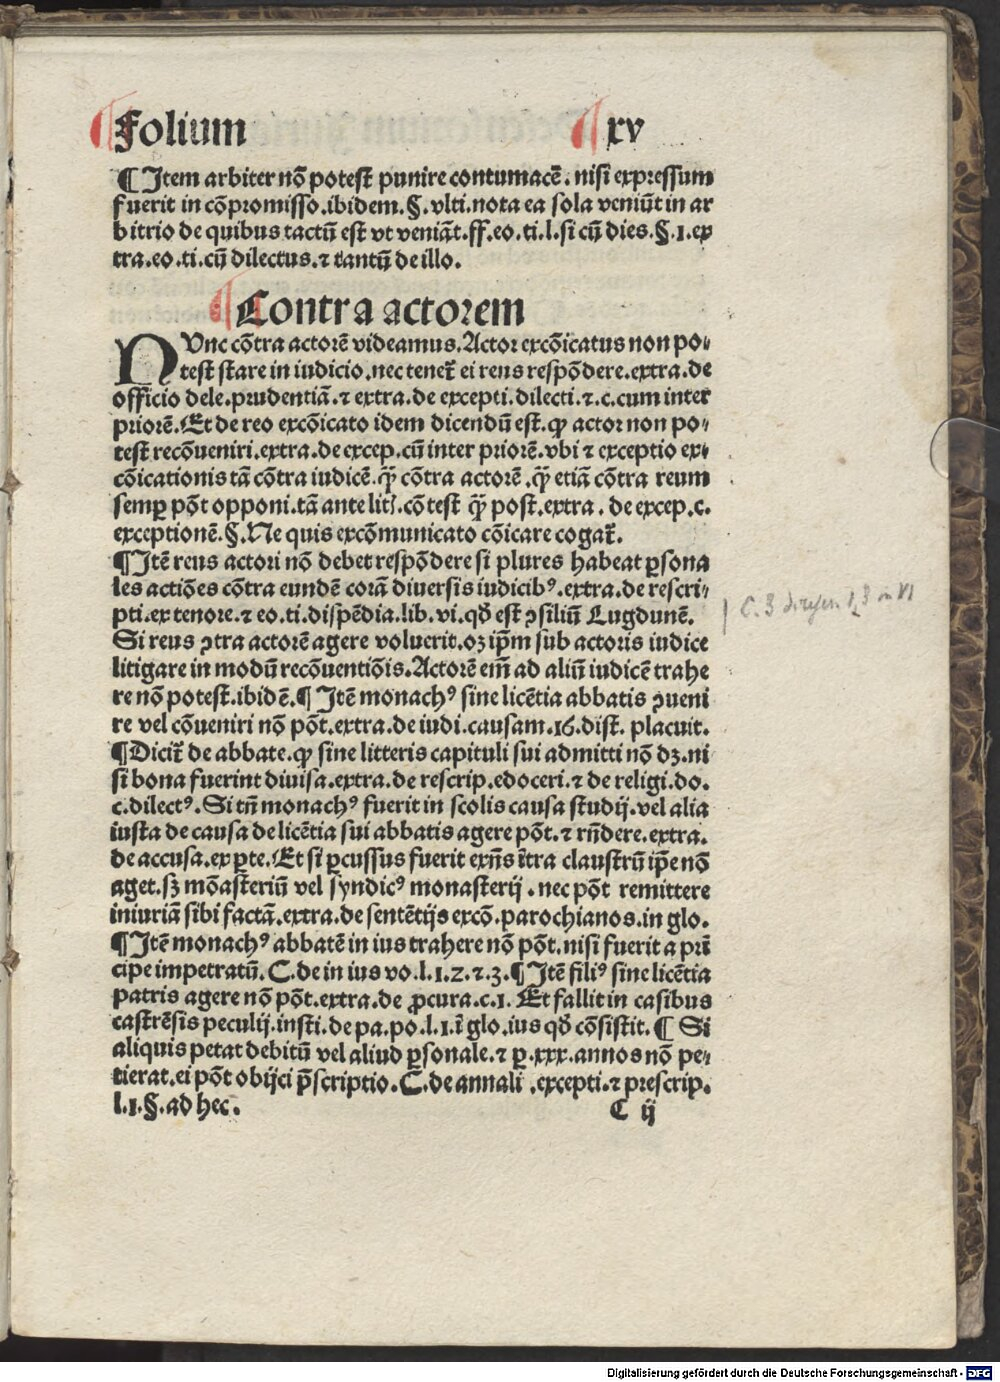 Folium xv
¶ Item arbiter nō potest punire contumacē . nisi expressum
fuerit in cōpromisso.ibidem.§.vlti.nota ea sola veniūt in ar
bitrio de quibus tactū est vt veniāt.ff.eo.ti.l.si cū dies.§.1.ex
tra.eo.ti.cū dilectus.⁊ tantū de illo.
Contra actorem
NVnc cōtra actorē videamus.Actor excōicatus non po⸗
test stare in iudicio.nec tenet̄ ei reus respōdere.extra.de
officio dele.prudentiā.⁊ extra.de excepti.dilecti.⁊.c.cum inter
priorē.Et de reo excōicato idem dicendū est.ꝙ actor non po⸗
test recōueniri.extra.de excep.cū inter priorē.vbi ⁊ exceptio ex⸗
cōicationis tā cōtra iudicē.q̄ȝ cōtra actorē.q̄ȝ etiā cōtra reum
semꝑ pōt opponi.tā ante lit̄.cōtest q̄ȝ post.extra . de excep.c.
exceptionē.§.Ne quis excōmunicato cōicare cogat̄.
¶Itē reus actori nō debet respōdere si plures habeat ꝑsona
les actiōes cōtra eundē corā diuersis iudicibꝰ.extra.de rescri⸗
pti.ex tenore.⁊ eo.ti.dispēdia.lib.vi.qđ est ꝯsiliū Lugdunē.
Si reus ꝯtra actorē agere voluerit.oȝ ip̄m sub actoris iudice
litigare in modū recōuentiōis.Actorē em̄ ad aliū iudicē trahe
re nō potest.ibidē.¶ Itē monachꝰ sine licētia abbatis ꝯueni
re vel cōueniri nō pōt.extra.de iudi.causam.16.dist. placuit.
¶Dicit̄ de abbate.ꝙ sine litteris capituli sui admitti nō dȝ.ni
si bona fuerint diuisa.extra.de rescrip.edoceri.⁊ de religi.do.
c.dilectꝰ.Si tn̄ monachꝰ fuerit in scolis causa studij.vel alia
iusta de causa de licētia sui abbatis agere pōt.⁊ rn̄dere.extra.
de accusa.ex ꝑte.Et si ꝑcussus fuerit exn̄s ītra claustrū ip̄e nō
aget.sȝ mōasteriū vel syndicꝰ monasterij . nec pōt remittere
iniuriā sibi factā.extra.de sentētijs excō.parochianos.in glo.
¶Itē monachꝰ abbatē in ius trahere nō pōt.nisi fuerit a prī
cipe impetratū. C.de in ius vo.l.1.2.⁊.3.¶Itē filiꝰ sine licētia
patris agere nō pōt.extra.de ꝓcura.c.1. Et fallit in casibus
castrēsis peculij.insti.de pa.po.l.1.ī glo.ius qđ cōsistit.¶ Si
aliquis petat debitū vel aliud ꝑsonale.⁊ ꝑ.xxx.annos nō pe⸗
tierat.ei pōt obijci p̄scriptio.C.de annali .excepti.⁊ prescrip.
l.1.§.ad hec. C ij
Digitalisierung gefördert durch die Deutsche Forschungsgemeinschaft - DFG